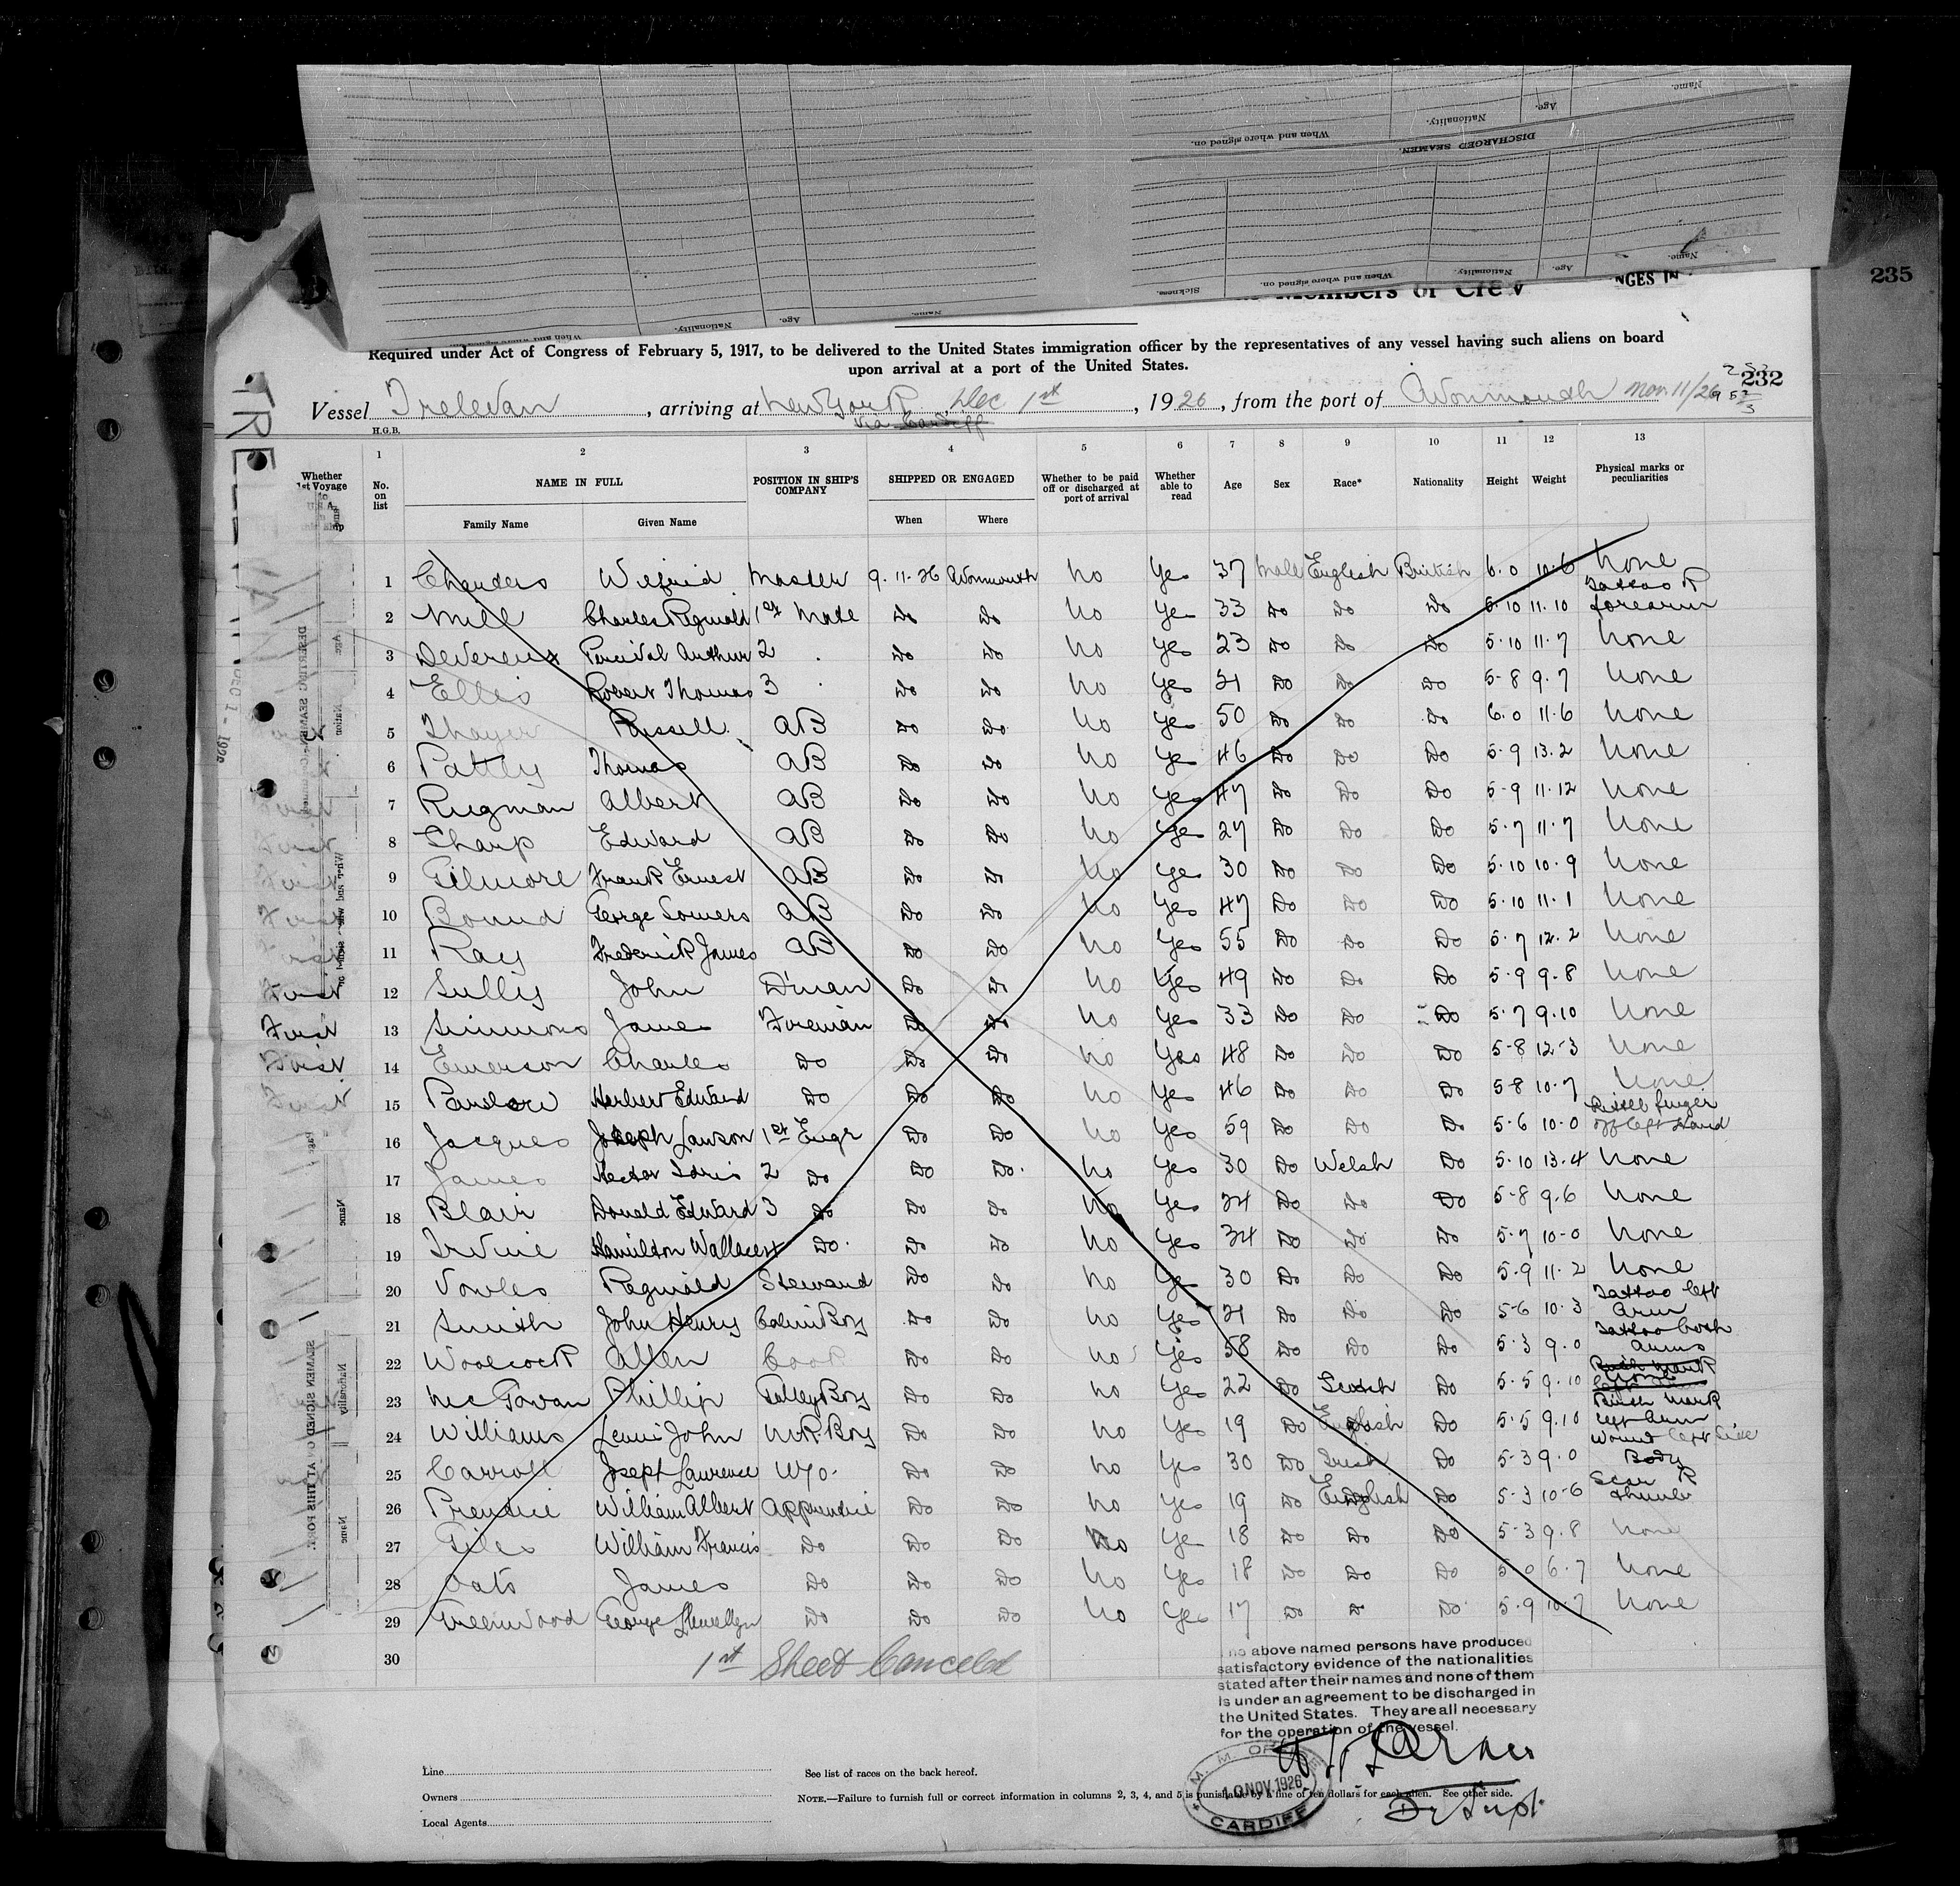 235
Members of Crew
NGES IN
Required under Act of Congress of February 5, 1917, to be delivered to the United States immigration officer by the representatives of any vessel having such aliens on board
upon arrival at a port of the United States.
232
Vessel Trelevan, arriving at New York Dec 1st, 1926, from the port of Avonmouth
via Cardiff
H.G.B.
1 2 3 4 5 6 7 8 9 10 11 12 13
Whether 1st Voyage
No. on list
NAME IN FULL
Family Name
Given Name
POSITION IN SHIP'S COMPANY
SHIPPED OR ENGAGED
When
Where
Whether to be paid off or discharged at port of arrival
Whether able to read
Age
Sex
Race*
Nationality
Height
Weight
Physical marks or peculiarities
1 Wilfrid Master 9.11.26 Avonmouth No Yes 37 Male English British 6.0 10.6 None
2 Mill Charles Reginald 1st Mate Do Do No Yes 33 Do Do Do 5.10 11.10 Tattoo R forearm
3 Devereux Percival Arthur 2 Do Do No Yes 23 Do Do Do 5.10 11.7 None
4 Ellis Robert Thomas 3 Do Do No Yes 21 Do Do Do 5-8 9.7 None
5 Thayer Russell AB Do Do No Yes 50 Do Do Do 6.0 11.6 None
6 Thomas AB Do Do No Yes 46 Do Do Do 5-9 13.2 None
7 Rugman Albert AB Do Do No Yes 47 Do Do Do 5-9 11.12 None
8 Sharp Edward AB Do Do No Yes 27 Do Do Do 5.7 11.7 None
9 Gilmore Frank Ernest AB Do Do No Yes 30 Do Do Do 5.10 10.9 None
10 Bound George Somers AB Do Do No Yes 47 Do Do Do 5.10 11.1 None
11 Ray Frederick James AB Do Do No Yes 55 Do Do Do 5.7 12.2 None
First 12 Sully John D'man Do Do No Yes 49 Do Do Do 5.9 9.8 None
First 13 Simmons James Fireman Do Do No Yes 33 Do Do Do 5.7 9.10 None
First 14 Emerson Charles Do Do Do No Yes 48 Do Do Do 5-8 12-3 None
First 15 Herbert Edward Do Do Do No Yes 46 Do Do Do 5-8 10.7 None
16 Jacques Joseph Lawson 1st Engr Do Do No Yes 59 Do Do Do 5-6 10-0 finger off left Hand
17 James Hector Idris 2 Do Do Do No Yes 30 Do Welsh Do 5.10 13.4 None
18 Blair Donald Edward 3 Do Do Do No Yes 24 Do Do Do 5-8 9.6 None
19 Irvine Hamilton Wallace 4 Do Do Do No Yes 34 Do Do Do 5.7 10-0 None
20 Vowles Reginald Steward Do Do No Yes 30 Do Do Do 5.9 11.2 None
21 Smith John Henry Cabin Boy Do Do No Yes 21 Do Do Do 5-6 10.3 Tattoo left arm
22 Woolcock Allen Cook Do Do No Yes 58 Do Do Do 5.3 9.0 Tattoo both arms
23 McGowan Phillip Galley Boy Do Do No Yes 22 Do Scotch Do 5.5 9.10 None
24 Williams John M.R. Boy Do Do No Yes 19 Do English Do 5.5 9.10 Birth Mark left arm
25 Carroll Joseph Lawrence W/O. Do Do No Yes 30 Do Irish Do 5-3 9.0 Wound left side Body
26 Prentice William Albert Apprentice Do Do No Yes 19 Do English Do 5-3 10-6 Scar R thumb
27 Giles William Francis Do Do Do No Yes 18 Do Do Do 5-3 9.8 None
28 Oats James Do Do Do No Yes 18 Do Do Do 5 0 6.7 None
29 Greenwood George Llewellyn Do Do Do No Yes 17 Do Do Do 5-9 10-7 None
30 1st Sheet Canceled
above named persons have produced
satisfactory evidence of the nationalities
stated after their names and none of them
is under an agreement to be discharged in
the United States. They are all necessary
for the operation of the vessel.
10 NOV. 1926
CARDIFF
Line
Owners
Local Agents
See list of races on the back hereof.
NOTE.—Failure to furnish full or correct information in columns 2, 3, 4, and 5 is punishable by a fine of ten dollars for each alien. See other side.